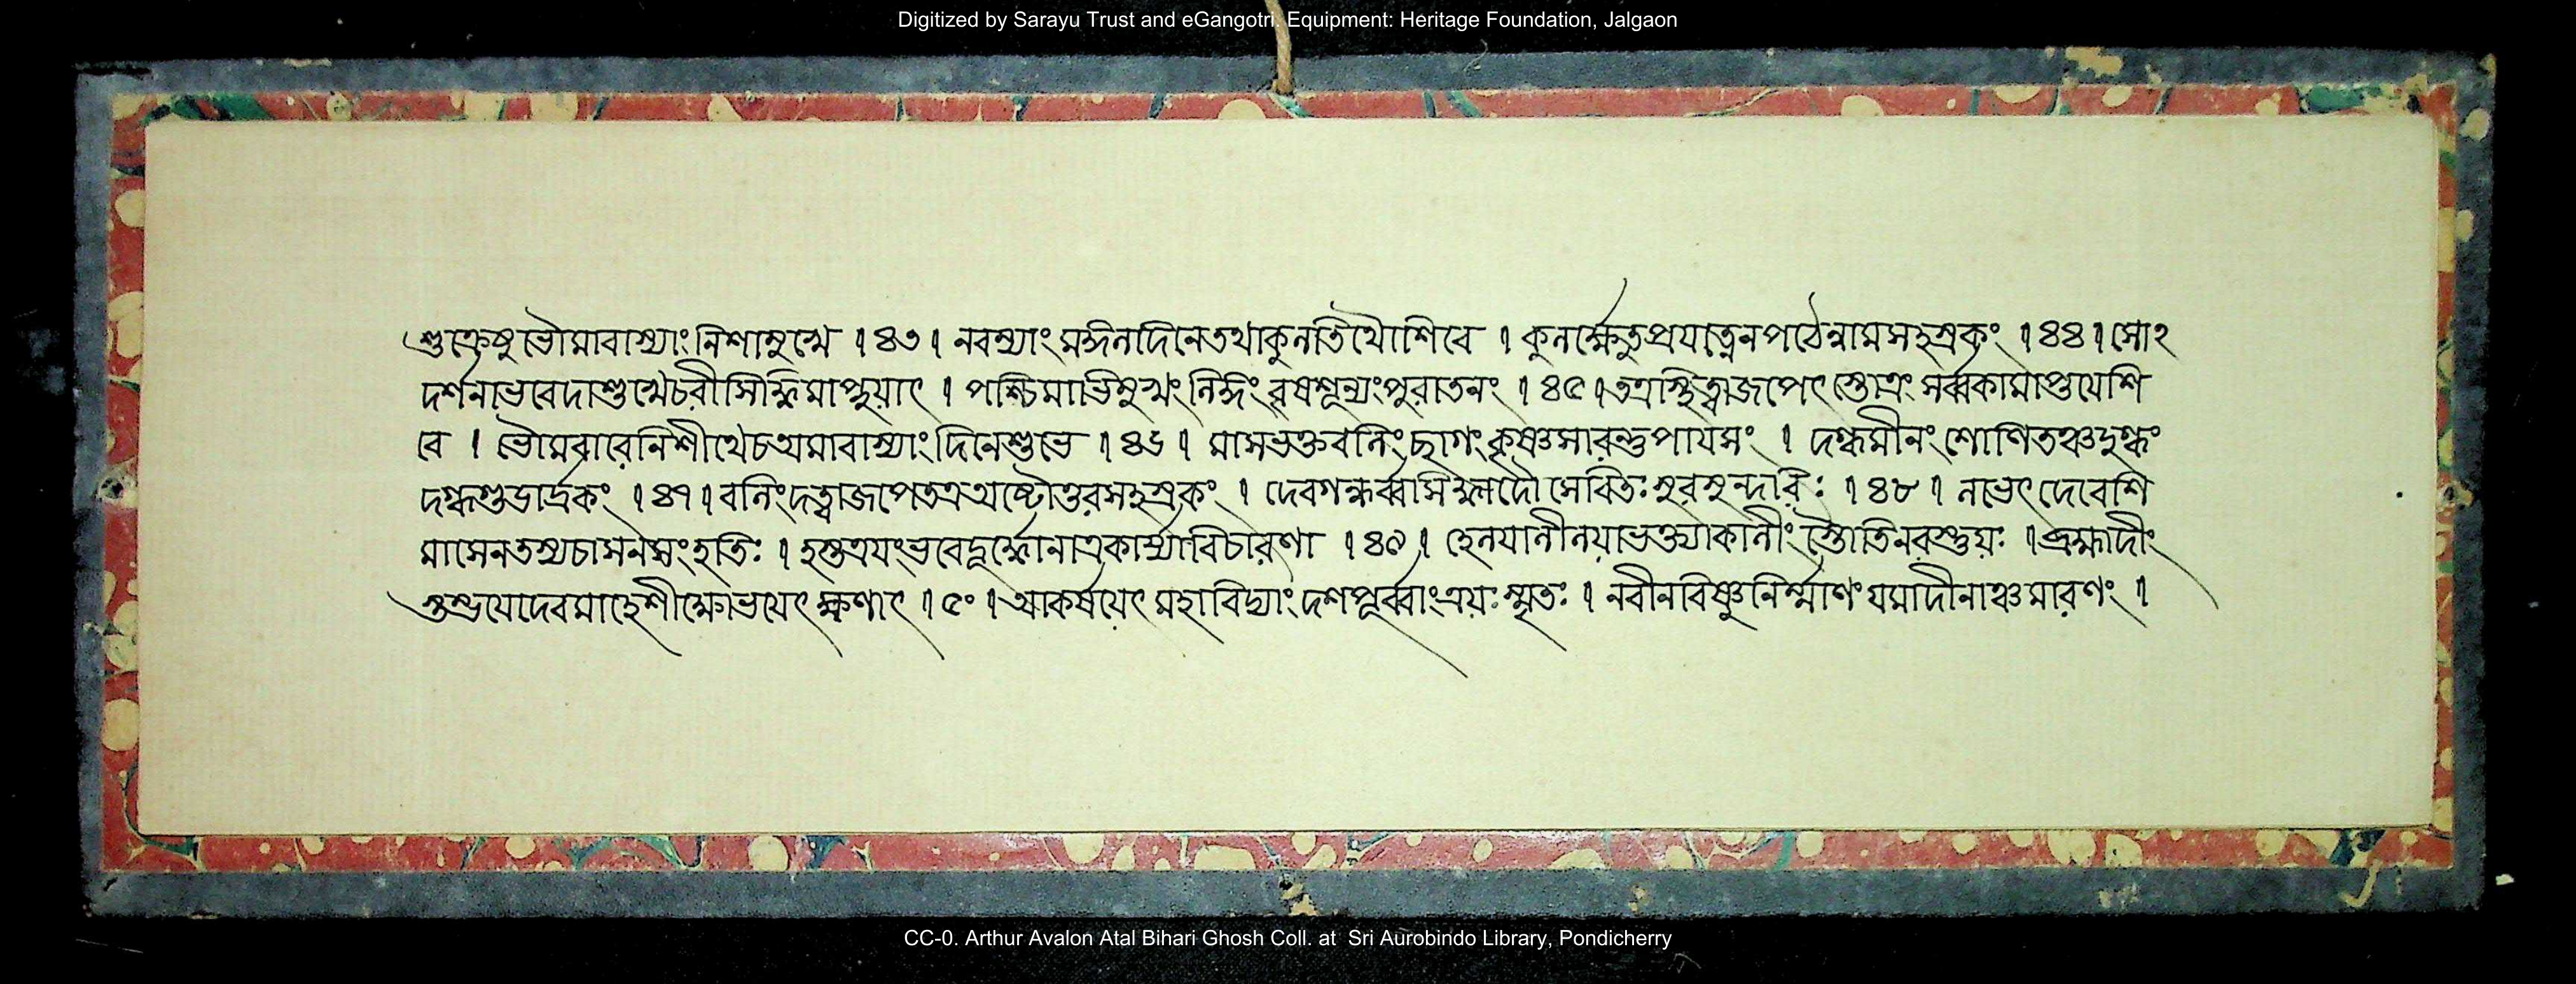 Digitized by Sarayu Trust and eGangotri. Equipment: Heritage Foundation, Jalgaon
শুক্রেষু ভৌমাবাস্যাং নিশামুখে । ৪৩ । নবম্যাং মঙ্গলদিনে তথা কুলতিথৌ শিবে । কুলর্ক্ষে তু প্রযত্নেন পঠেন্নামসহস্রকং । ৪৪ ।
দর্শনো ভবেদাশু খেচরী সিদ্ধিমাপ্নুয়াৎ । পশ্চিমাভিমুখং লিঙ্গং বৃষশূন্যং পুরাতনং । ৪৫ । তত্র স্থিত্বা জপেৎ স্তোত্রং সর্ব্বকামাপ্তয়ে শি
বে । ভৌমবারে নিশীথে চ অমাবাস্যাং দিনে শুভে । ৪৬ । মাসভক্তবলিং ছাগং কৃষ্ণসারন্তু পায়সং । দগ্ধমীনং শোণিতঞ্চ দুগ্ধং
দগ্ধগুড়ার্দ্রকং । ৪৭ । বলিং দত্বা জপেতত্র অষ্টোত্তরসহস্রকং । দেবগন্ধর্ব্ব সেবিতঃ সুরসুন্দরিঃ । ৪৮ । লভেৎ দেবেশি
মাসেন তস্য চাসনসংহতিঃ । হস্তত্রয়ং ভবেদূর্দ্ধ্বে নাত্র কার্য্যা বিচারণা । ৪৯ । হেলয়া লীলয়া ভক্ত্যা কালীং স্তৌতি নরস্তুয়ঃ । ব্রহ্মাদীং
স্তম্ভয়েদেব মাহেশীং মোহয়েৎ ক্ষণাৎ । ৫০ । আকর্ষয়েৎ মহাবিদ্যাং দশপূর্ব্বাং স্মৃতঃ । নবীনবিষ্ণুনির্ম্মাণং যমাদীনাঞ্চ মারণং ।
CC-0. Arthur Avalon Atal Bihari Ghosh Coll. at Sri Aurobindo Library, Pondicherry